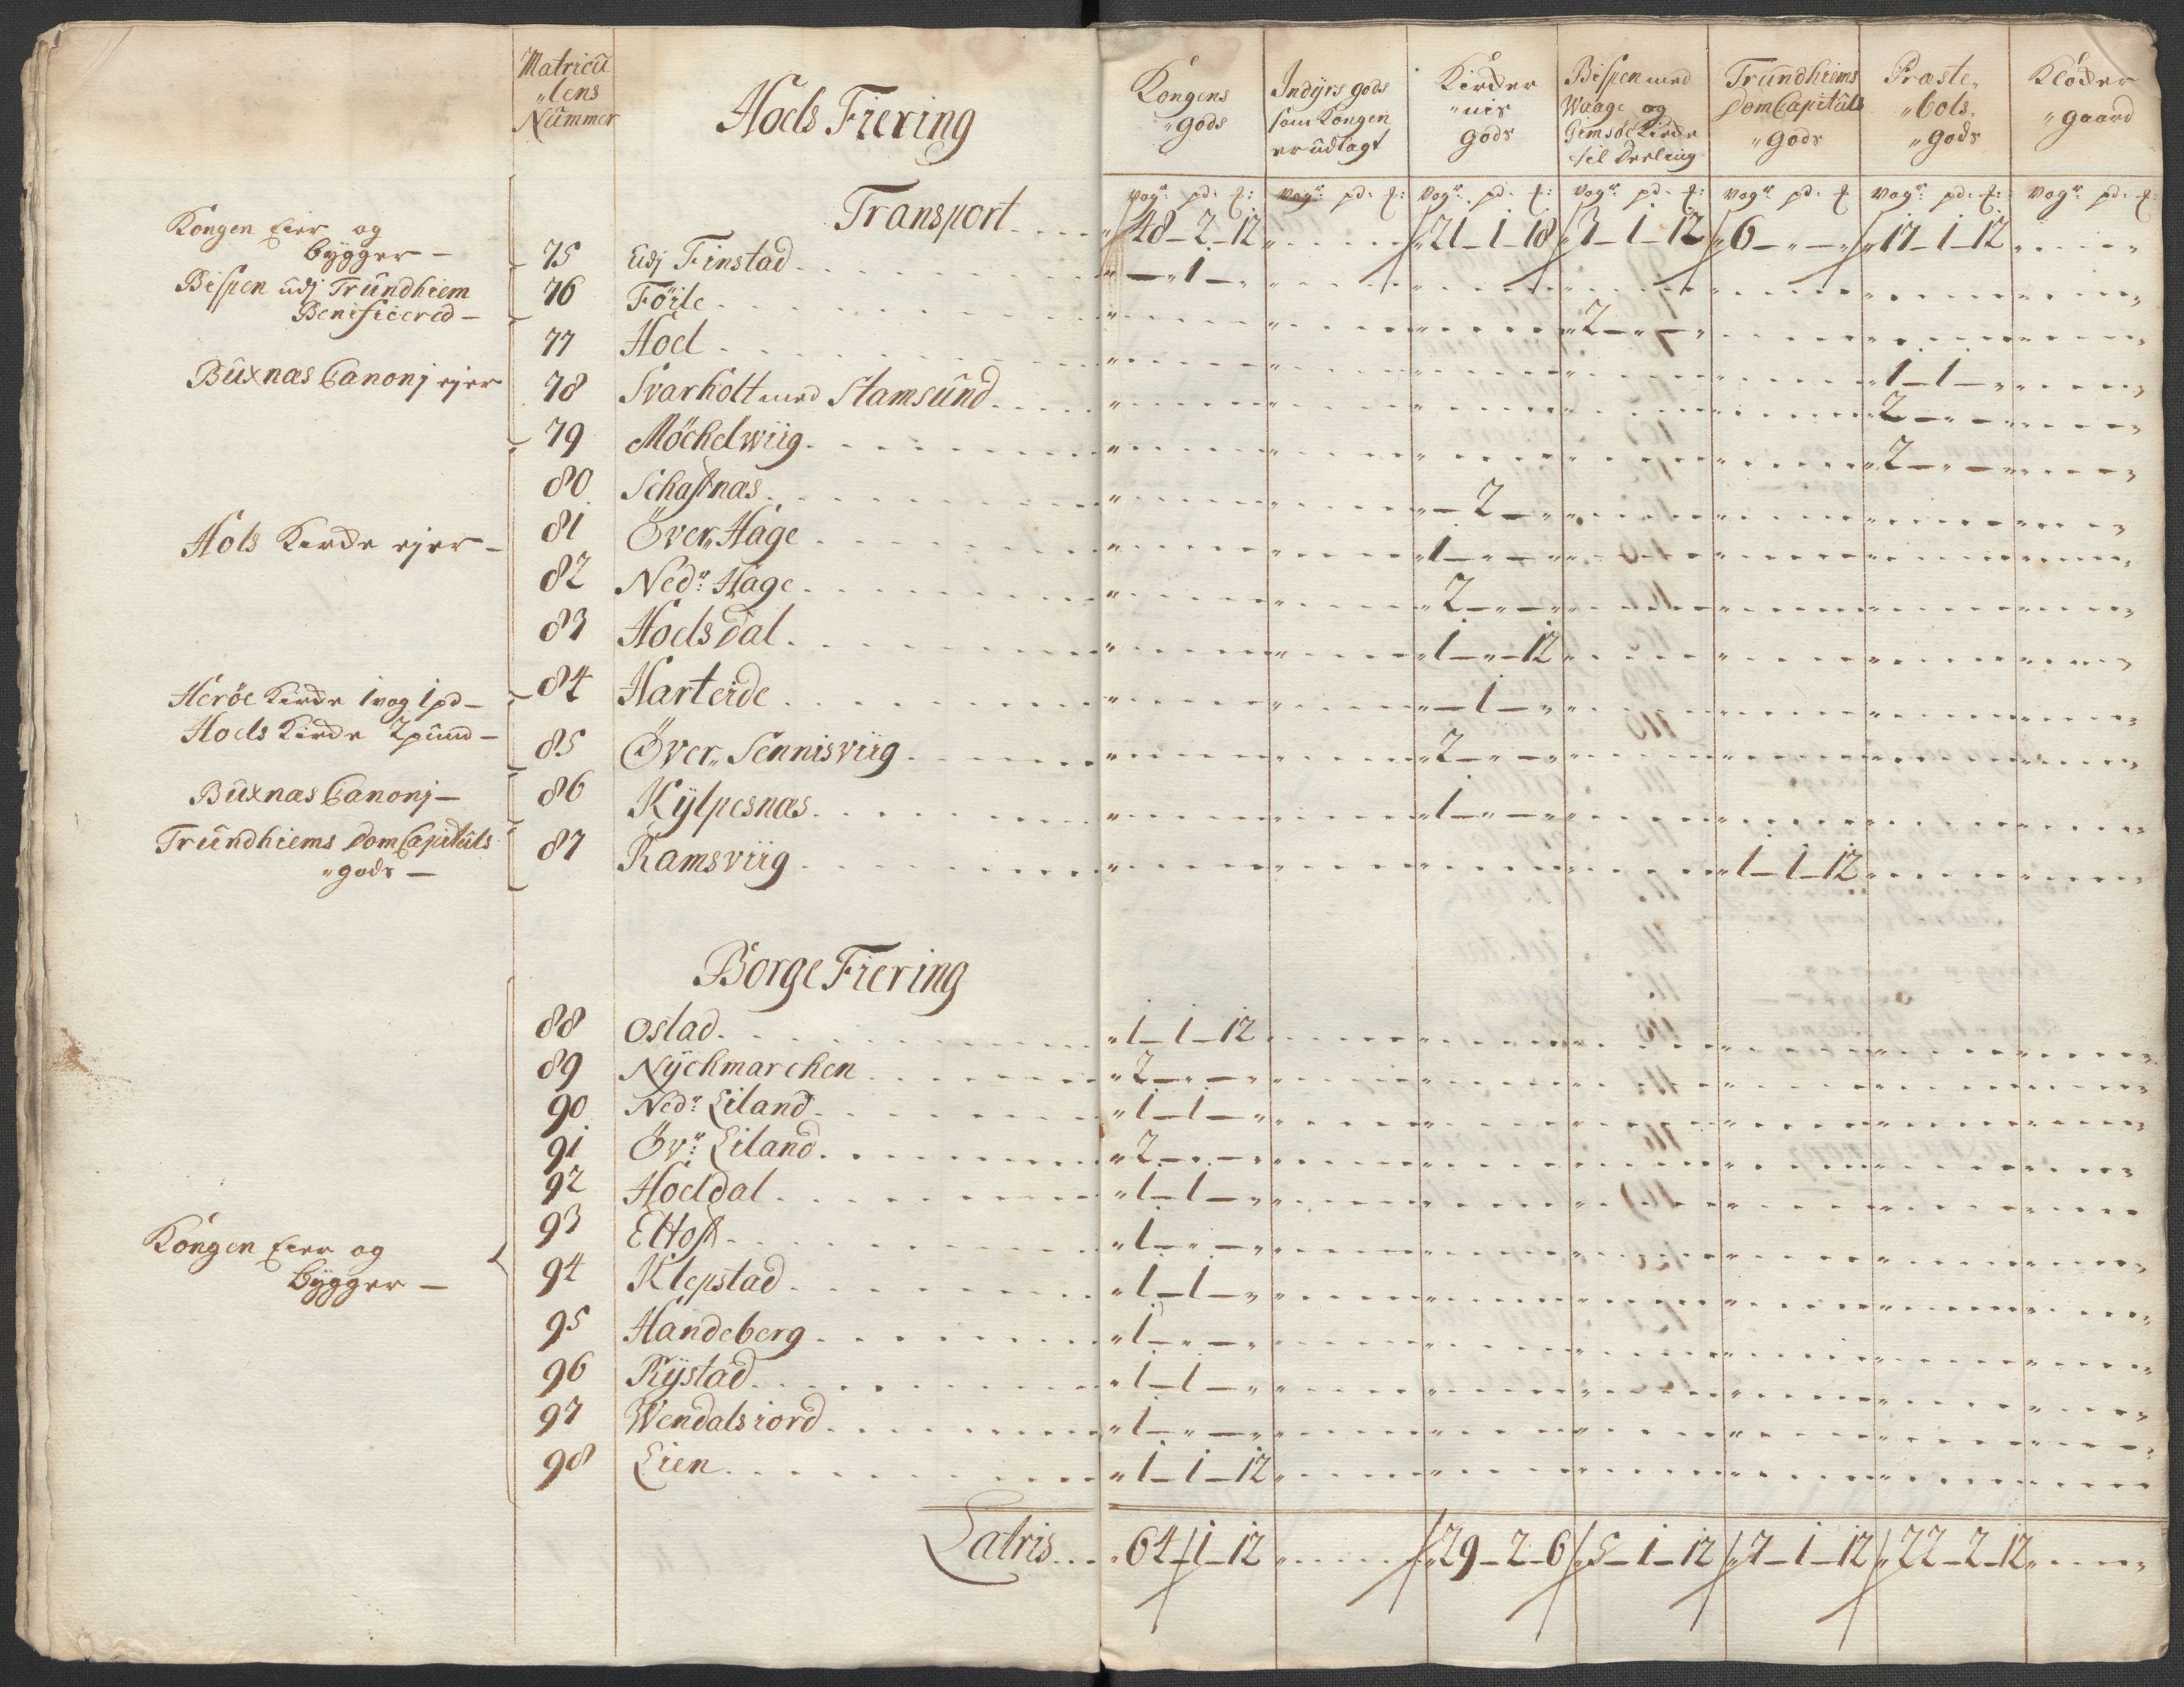 Matricu
"lens
Nummer
Hoels Fiering
Kongens
"gods
Indyrs gods
som Kongen
er udlagt
Kircker
"nis
gods
Bispen med
Waage og
Gimsøe Kircke
til Deeling
Trundhiems
Dom Capituls
"gods
Præste,
"bols,
"gods
Klocker
"gaard
vog: pd: : vogr: pd: : vogr: pd: : vogr: pd: : vogr: pd: vogr: pd: : vogr: pd:
Transport 48_2_12 21_1_18 3_1_12 6_"_" 17_1_12
Kongen Eier og
bygger _
75 Udj Finstad "_1_"
Bispen udj Trundhiem
Benificered _
76 Föile 2_"_"
77 Hoel 1_1_"
Buxnæs Canonj ejer
78 Svarholt med Stamsund 2_"_"
79 Möchelwiig 2_"_"
80 Schaftnæs _2_"
81 Över, Hage 1_"_"
Hols Kircke ejer _
82 Nedr: Hage 2_"_"
83 Hoelsdal 1_"_12
84 Harteide _1_"
Herøe Kircke 1 vog 1 pd _
Hoels Kircke 2 pund _
85 Över, Sennisviig 2_"_"
Buxnæs Canonj _
86 Kylpesnæs 1_"_"
Trundhiems Dom Capituls
"gods _
87 Ramsviig 1_1_12
Borge Fiering
88 Ostad 1_1_12
89 Nyckmarchen 2_"_"
90 Nedr: Eiland 1_1_"
91 Övr: Eiland 2_"_"
92 Hoeldal 1_1_"
93 Eltoft 1_"_"
Kongen Eier og
bygger _
94 Klepstad 1_1_"
95 Handeberg 1_"_"
96 Rystad 1_1_"
97 Wendalsiord 1_"_"
98 Eien 1_1_12
Latris 64_1_12 29_2_6 5_1_12 7_1_12 22_2_12